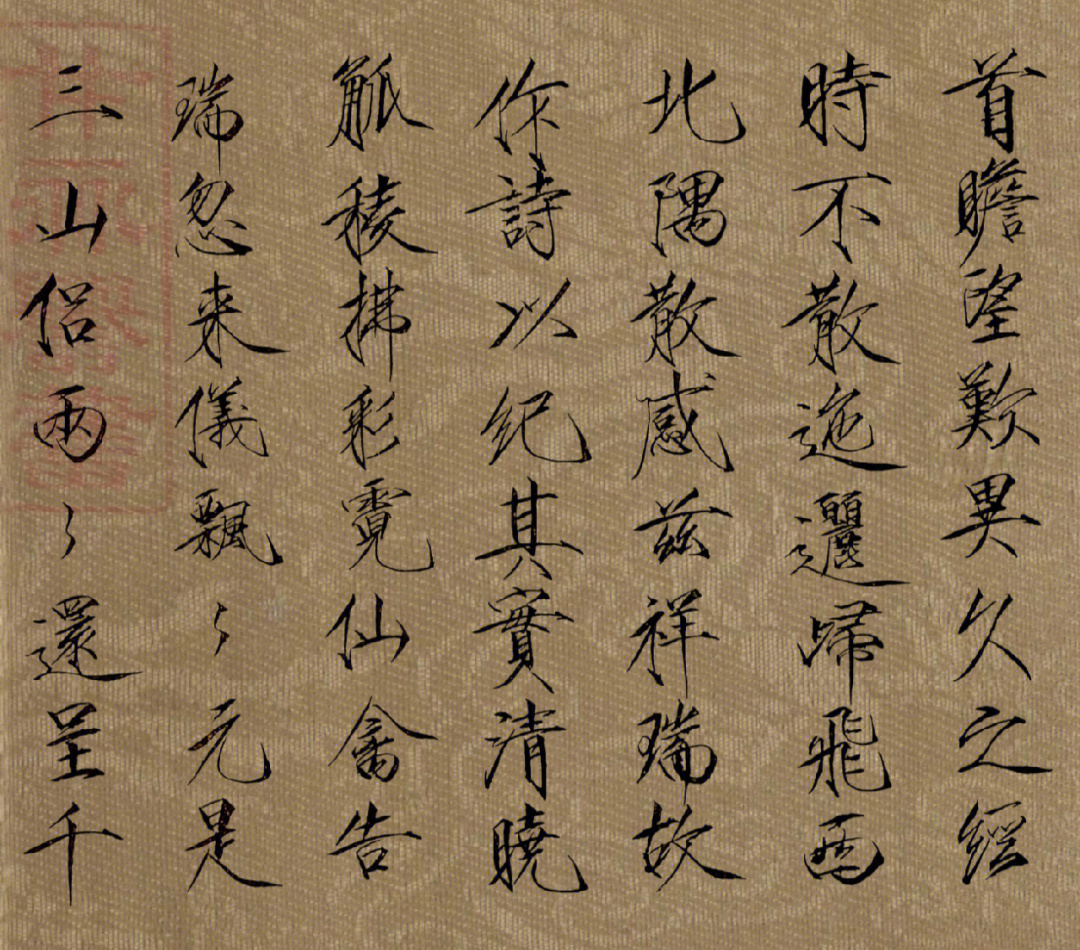 首瞻望歎異久之經
時不散迤邐歸飛西
北隅散感兹祥瑞故
作詩以纪其實清曉
觚稜拂彩霓仙禽告
瑞忽来儀飄〻元是
三山侣兩〻還呈千